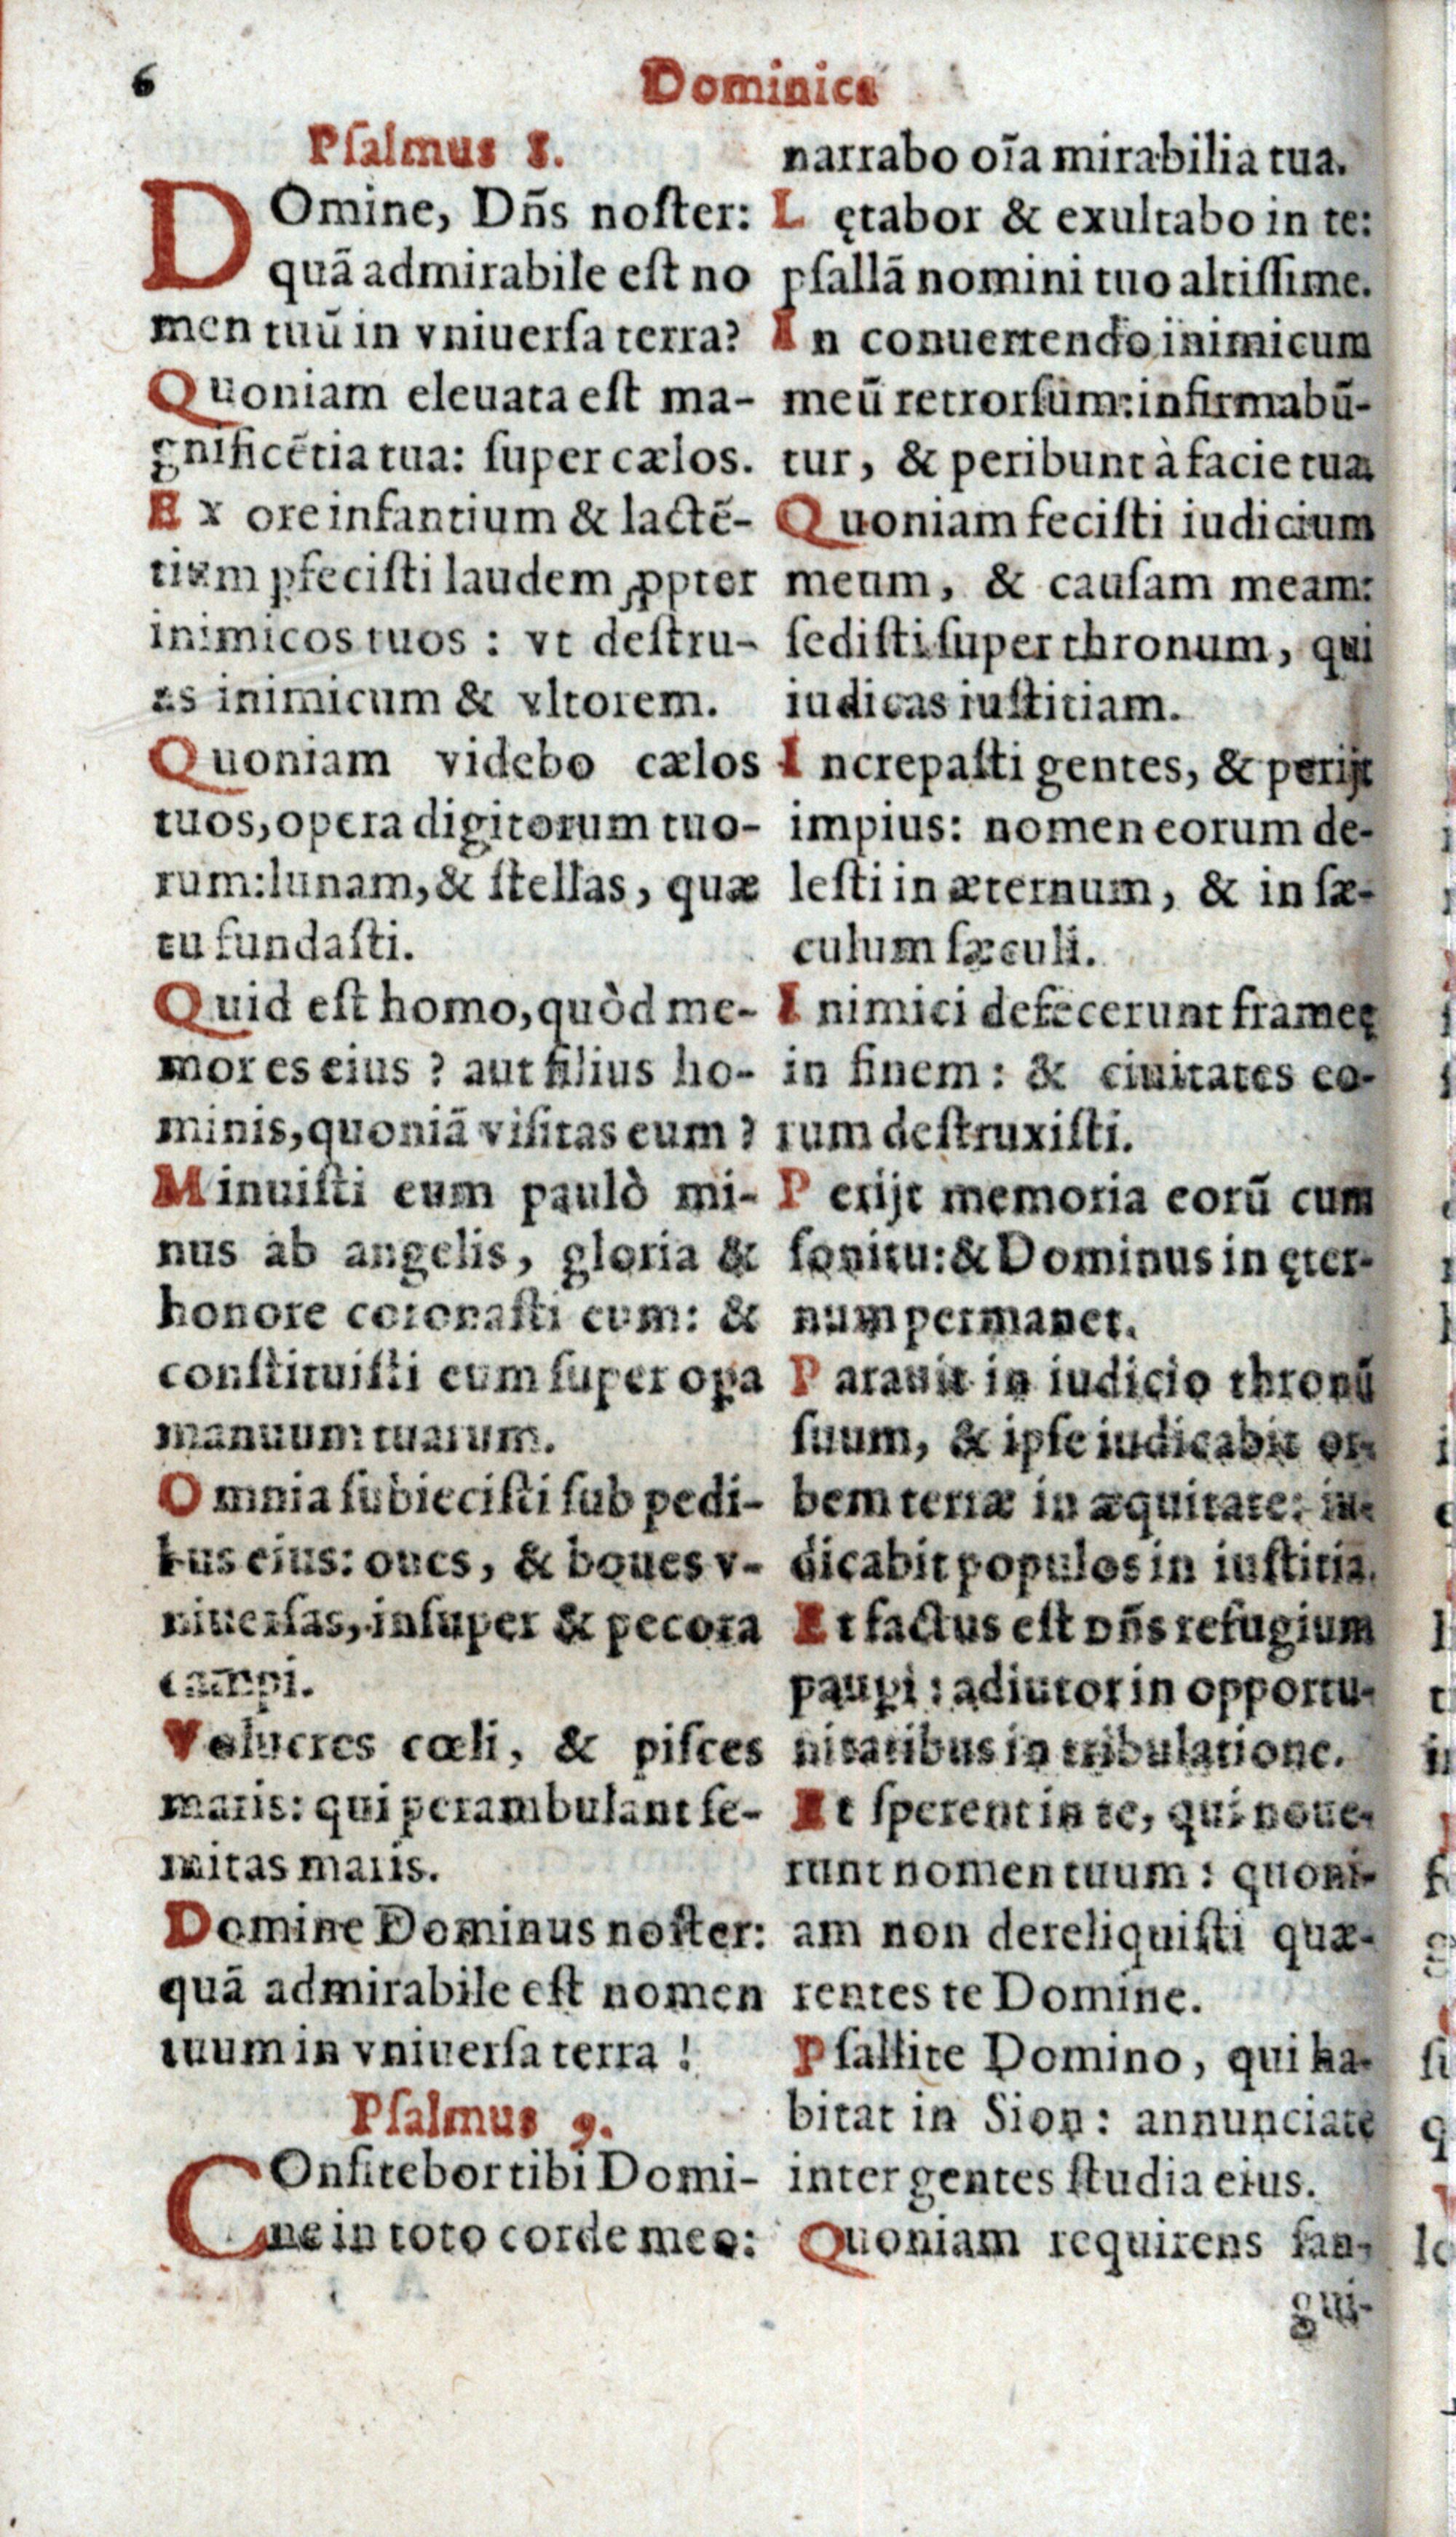 6
Dominica
Pſalmus 8.
DOmine, Dñs noſter:
quã admirabile eſt no
men tuũ in vniuerſa terra?
Quoniam eleuata eſt ma-
gnificẽtia tua: ſuper cælos.
Ex ore infantium & lactẽ-
tium ꝑfeciſti laudem ꝓpter
inimicos tuos : vt deſtru-
as inimicum & vltorem.
Quoniam videbo cælos
tuos, opera digitorum tuo-
rum: lunam, & ſtellas, quæ
tu fundaſti.
Quid eſt homo, quòd me-
mor es eius ? aut filius ho-
minis, quoniã viſitas eum ?
Minuiſti eum paulò mi-
nus ab angelis, gloria &
honore coronaſti eum: &
conſtituiſti eum ſuper oꝑa
manuum tuarum.
Omnia ſubieciſti ſub pedi-
bus eius: oues, & boues v-
niuerſas, inſuper & pecora
campi.
Volucres cœli, & piſces
maris: qui perambulant ſe-
mitas maris.
Domine Dominus noſter:
quã admirabile eſt nomen
tuum in vniuerſa terra !
Pſalmus 9.
COnfitebor tibi Domi-
ne in toto corde meo:
narrabo oĩa mirabilia tua.
Lętabor & exultabo in te:
pſallã nomini tuo altiſſime.
In conuertendo inimicum
meũ retrorſum: infirmabũ-
tur, & peribunt à facie tua.
Quoniam feciſti iudicium
meum, & cauſam meam:
ſediſti ſuper thronum, qui
iudicas iuſtitiam.
Increpaſti gentes, & perijt
impius: nomen eorum de-
leſti in æternum, & in ſæ-
culum ſæculi.
Inimici defecerunt frameę
in finem: & ciuitates eo-
rum deſtruxiſti.
Perijt memoria eorũ cum
ſonitu: & Dominus in ęter-
num permanet.
Parauit in iudicio thronũ
ſuum, & ipſe iudicabit or-
bem terræ in æquitate: iu-
dicabit populos in iuſtitia.
Et factus eſt Dñs refugium
pauꝑi : adiutor in opportu-
nitatibus in tribulatione.
Et ſperent in te, qui noue-
runt nomen tuum : quoni-
am non dereliquiſti quæ-
rentes te Domine.
Pſallite Domino, qui ha-
bitat in Sion : annunciate
inter gentes ſtudia eius.
Quoniam requirens ſan-
gui-